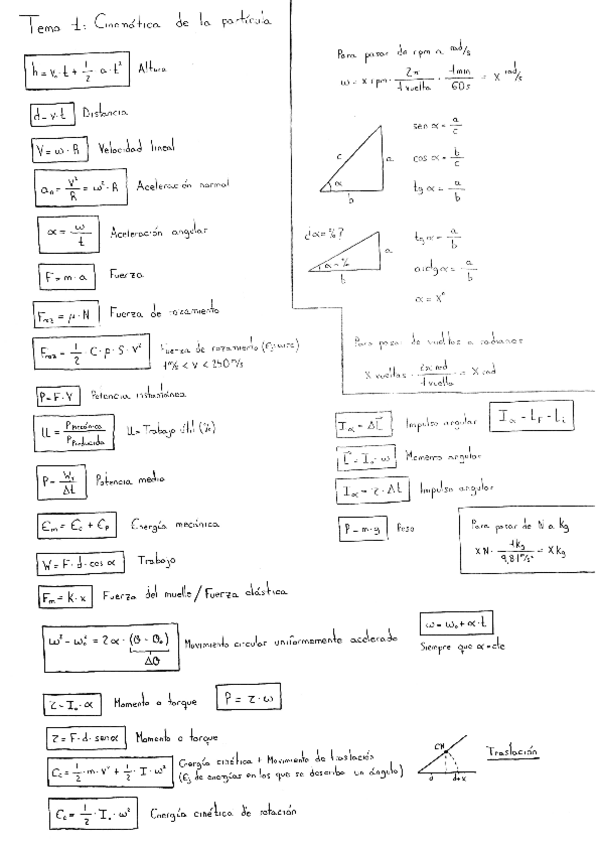 Tema 1: Cinemática de la partícula
h = v₀·t + 1/2 · a·t² Altura
d = v·t Distancia
V = ω·R Velocidad lineal
aₙ = V²/R = ω²·R Aceleración normal
α = ω/t Aceleración angular
F = m·a Fuerza
Froz = μ·N Fuerza de rozamiento
Froz = 1/2 · C·ρ·S·V² Fuerza de rozamiento
1 m/s < v < 250 m/s
P = F·V Potencia instantánea
μ = Pmecánica/Pproducida μ = Trabajo útil (%)
P = W/Δt Potencia media
Em = Ec + Ep Energía mecánica
W = F·d·cos α Trabajo
Fm = K·x Fuerza del muelle / Fuerza elástica
ω² - ω₀² = 2α·(θ - θ₀) Movimiento circular uniformemente acelerado
Δθ
τ = I₀·α Momento o torque P = τ·ω
τ = F·d·sen α Momento o torque
Ec = 1/2·m·v² + 1/2·I·ω² Energía cinética + Movimiento de traslación
(Ej de energías en los que se describe un ángulo)
Ec = 1/2·I₀·ω² Energía cinética de rotación
Para pasar de rpm a rad/s
ω = x rpm · 2π/1 vuelta · 1 min/60 s = X rad/s
c a α b
sen α = a/c
cos α = b/c
tg α = a/b
¿α = %?
α = % a b
tg α = a/b
arctg α = a/b
α = X°
Para pasar de vueltas a radianes
X vueltas · 2π rad/1 vuelta = X rad
Iα = ΔL Impulso angular Iα = LF - Li
L = I₀·ω Momento angular
Iα = τ·Δt Impulso angular
P = m·g Peso
Para pasar de N a kg
X N · 1 kg/9,81 m/s² = X kg
ω = ω₀ + α·t
Siempre que α = cte
CM
0 d+x
Traslación